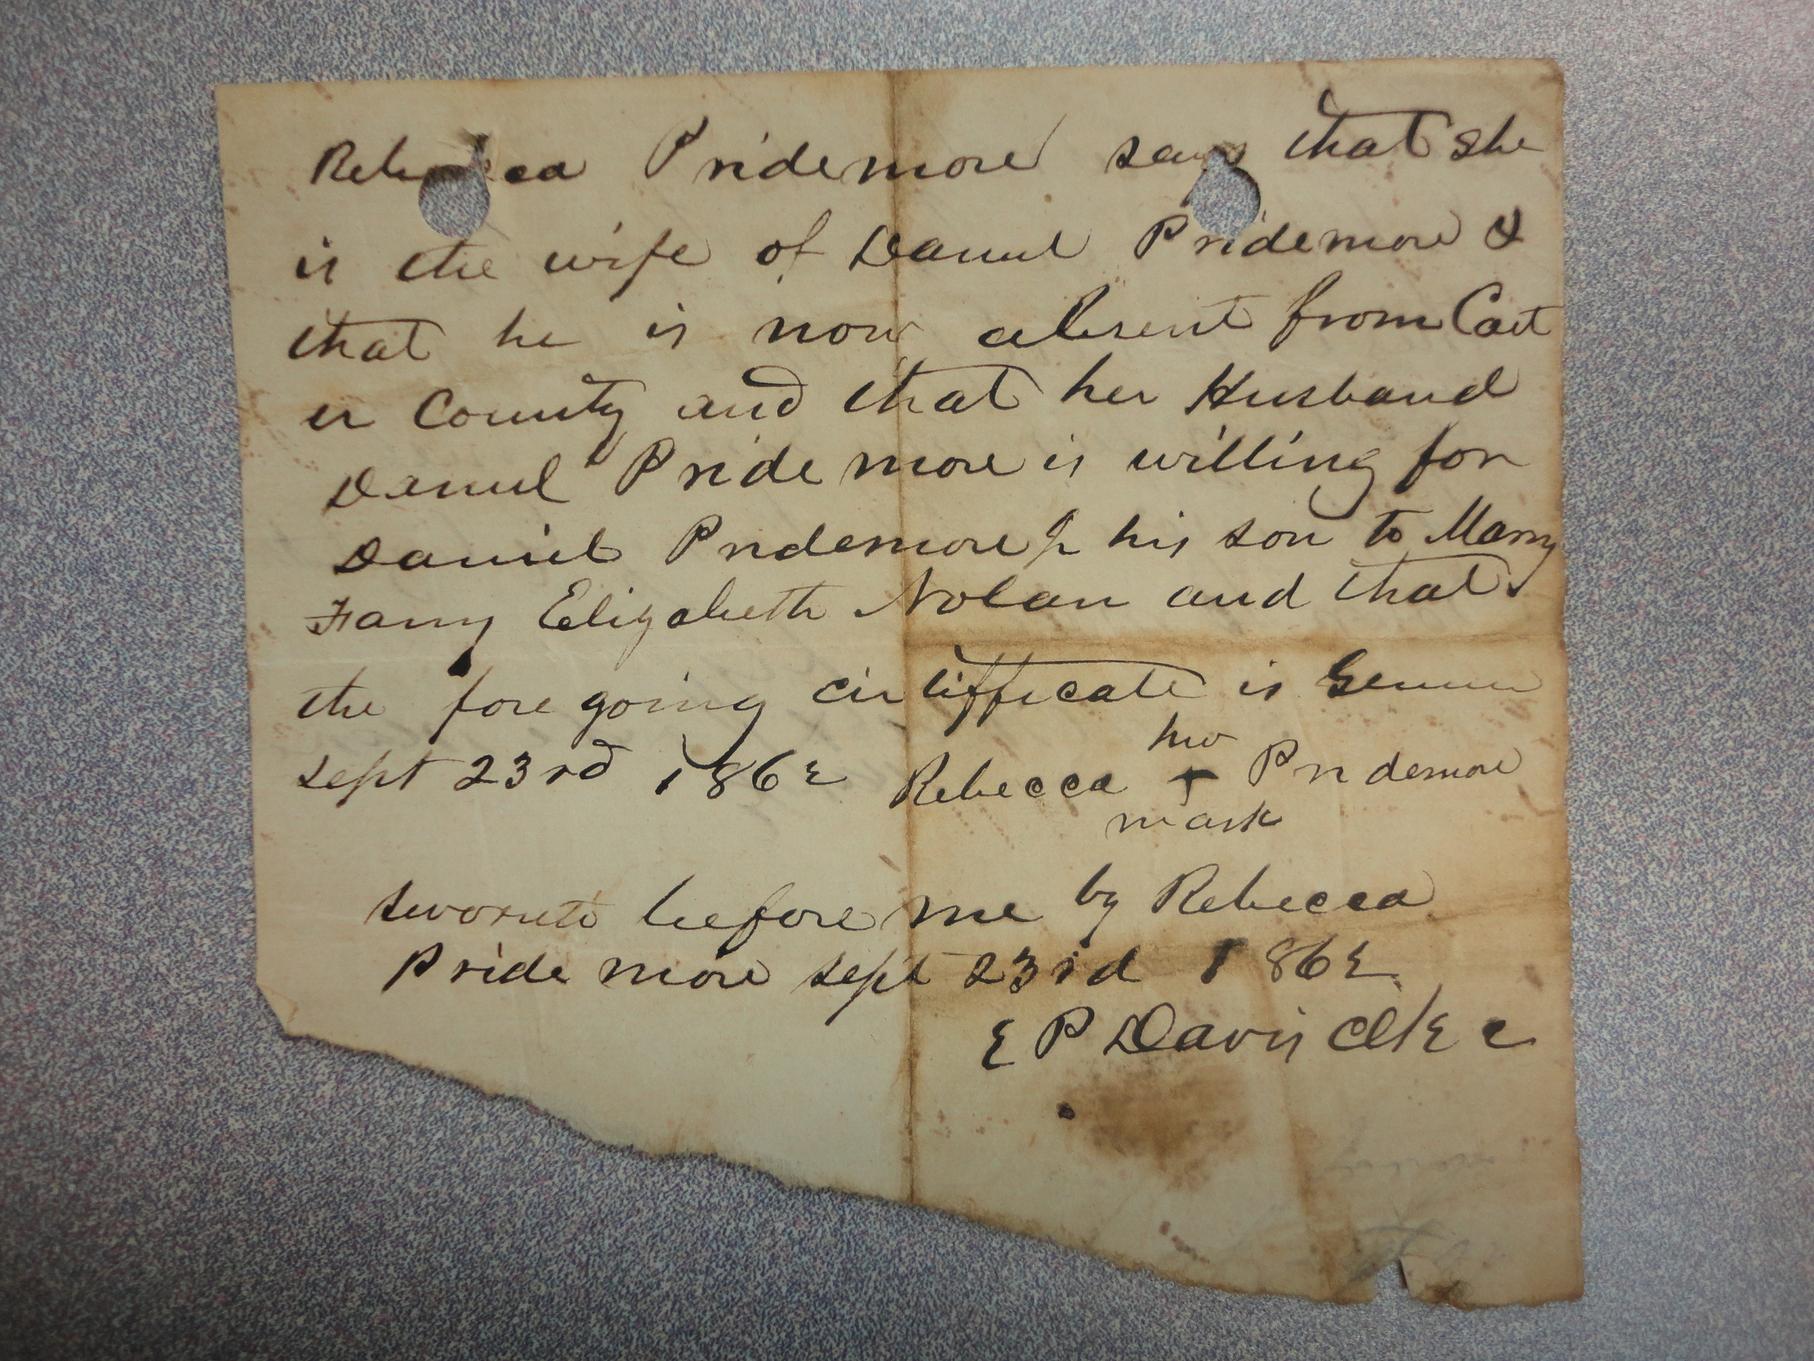 Rebecca Pridemore says that she
is the wife of Daniel Pridemore &
that he is now absent from Cart
er County and that her Husband
Daniel Pridemore is willing for
Daniel Pridemore Jr his son to Marry
Fanny Elizabeth Nolan and that
the fore going certifficate is Genuin
her
Sept 23rd 1862 Rebecca + Pridemore
mark
sworn to before me by Rebecca
Pridemore Sept 23rd 1862
E P Davis